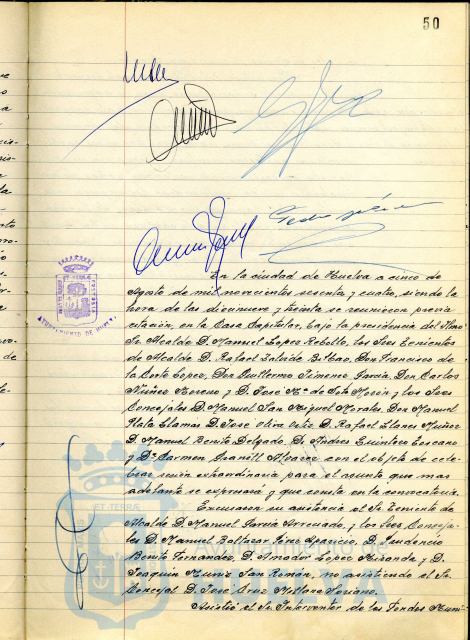 50
En la ciudad de Huelva a cinco de
Agosto de mil novecientos sesenta y cuatro, siendo la
hora de las diecinueve y treinta se reunieron previa
citación, en la Casa Capitular, bajo la presidencia del Iltmo
Sr. Alcalde D. Manuel Lopez Rebollo, los Sres Tenientes
de Alcalde D. Rafael Balvide Bilbao, Don Francisco de
la Corte Lopez, Don Guillermo Jimenez García, Don Carlos
Nuñez Moreno y D. José Mª de Soto Morón y los Sres
Concejales D. Manuel San Miguel Morales Don Manuel
Plata Llamas D. Jose Oliva Ortiz D. Rafael Llanes Muñoz
D. Manuel Benito Delgado, D. Andres Quintero Lozcano
y Dª Carmen Alvarez con el objeto de cele-
brar sesión extraordinaria para el asunto que mas
adelante se expresará y que consta en la convocatoria.
Excusaron su asistencia el Sr. Teniente de
Alcalde D. Manuel Garcia y los Sres Conceja-
les D. Manuel Baltazar Pérez Aparicio, D. Prudencio
Benito Fernandez, D. Amador Lopez Miranda y D.
Joaquin Muniz San Román, no asistiendo el Sr.
Concejal D. José Cruz Soriano.
Asistió el Sr. Interventor de los Fondos Muni-
AYUNTAMIENTO DE HUELVA